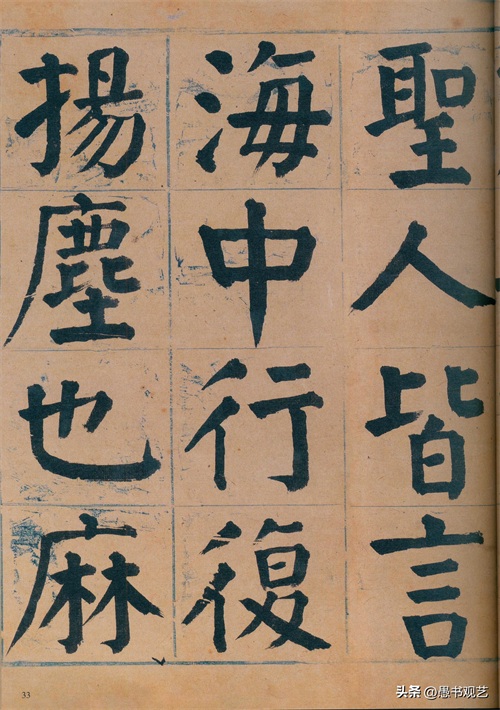 聖人皆言
海中行復
揚塵也麻
33
头条 @愚书观艺